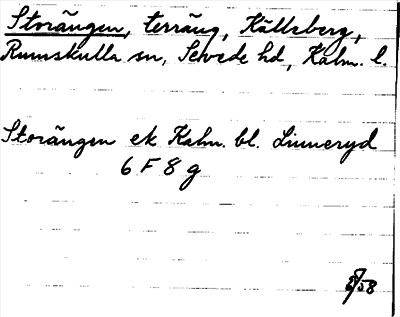 Storängen, terräng, Källeberg,
Rumskulla sn, Sevede hd, Kalm. l.
Storängen ek Kalm. bl. Linneryd
6 F 8 g